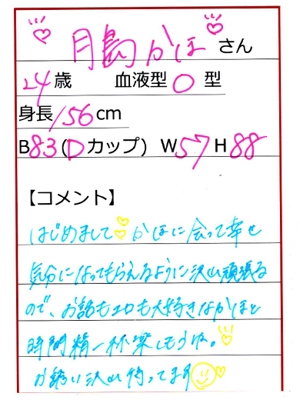 月島かほさん
24歳 血液型O型
身長156cm
B83(Dカップ) W57H88
【コメント】
はじめましてかほに会って幸せ
気分になってもらえるように沢山頑張る
ので、お話もエロも大好きなかほと
時間精一杯楽しもうね。
お誘い沢山待ってます